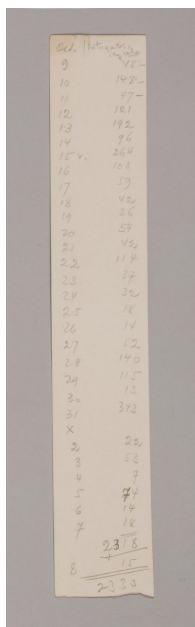 Oct.
9 18-
10 148-
11 47-
12 121
13 192
14 96
15 264
16 108
17 59
18 42
19 26
20 54
21 42
22 114
23 37
24 32
25 18
26 14
27 52
28 140
29 115
30 13
31 343
X
2 22
3 53
4 7
5 74
6 14
7 18
2318
8 15
2333